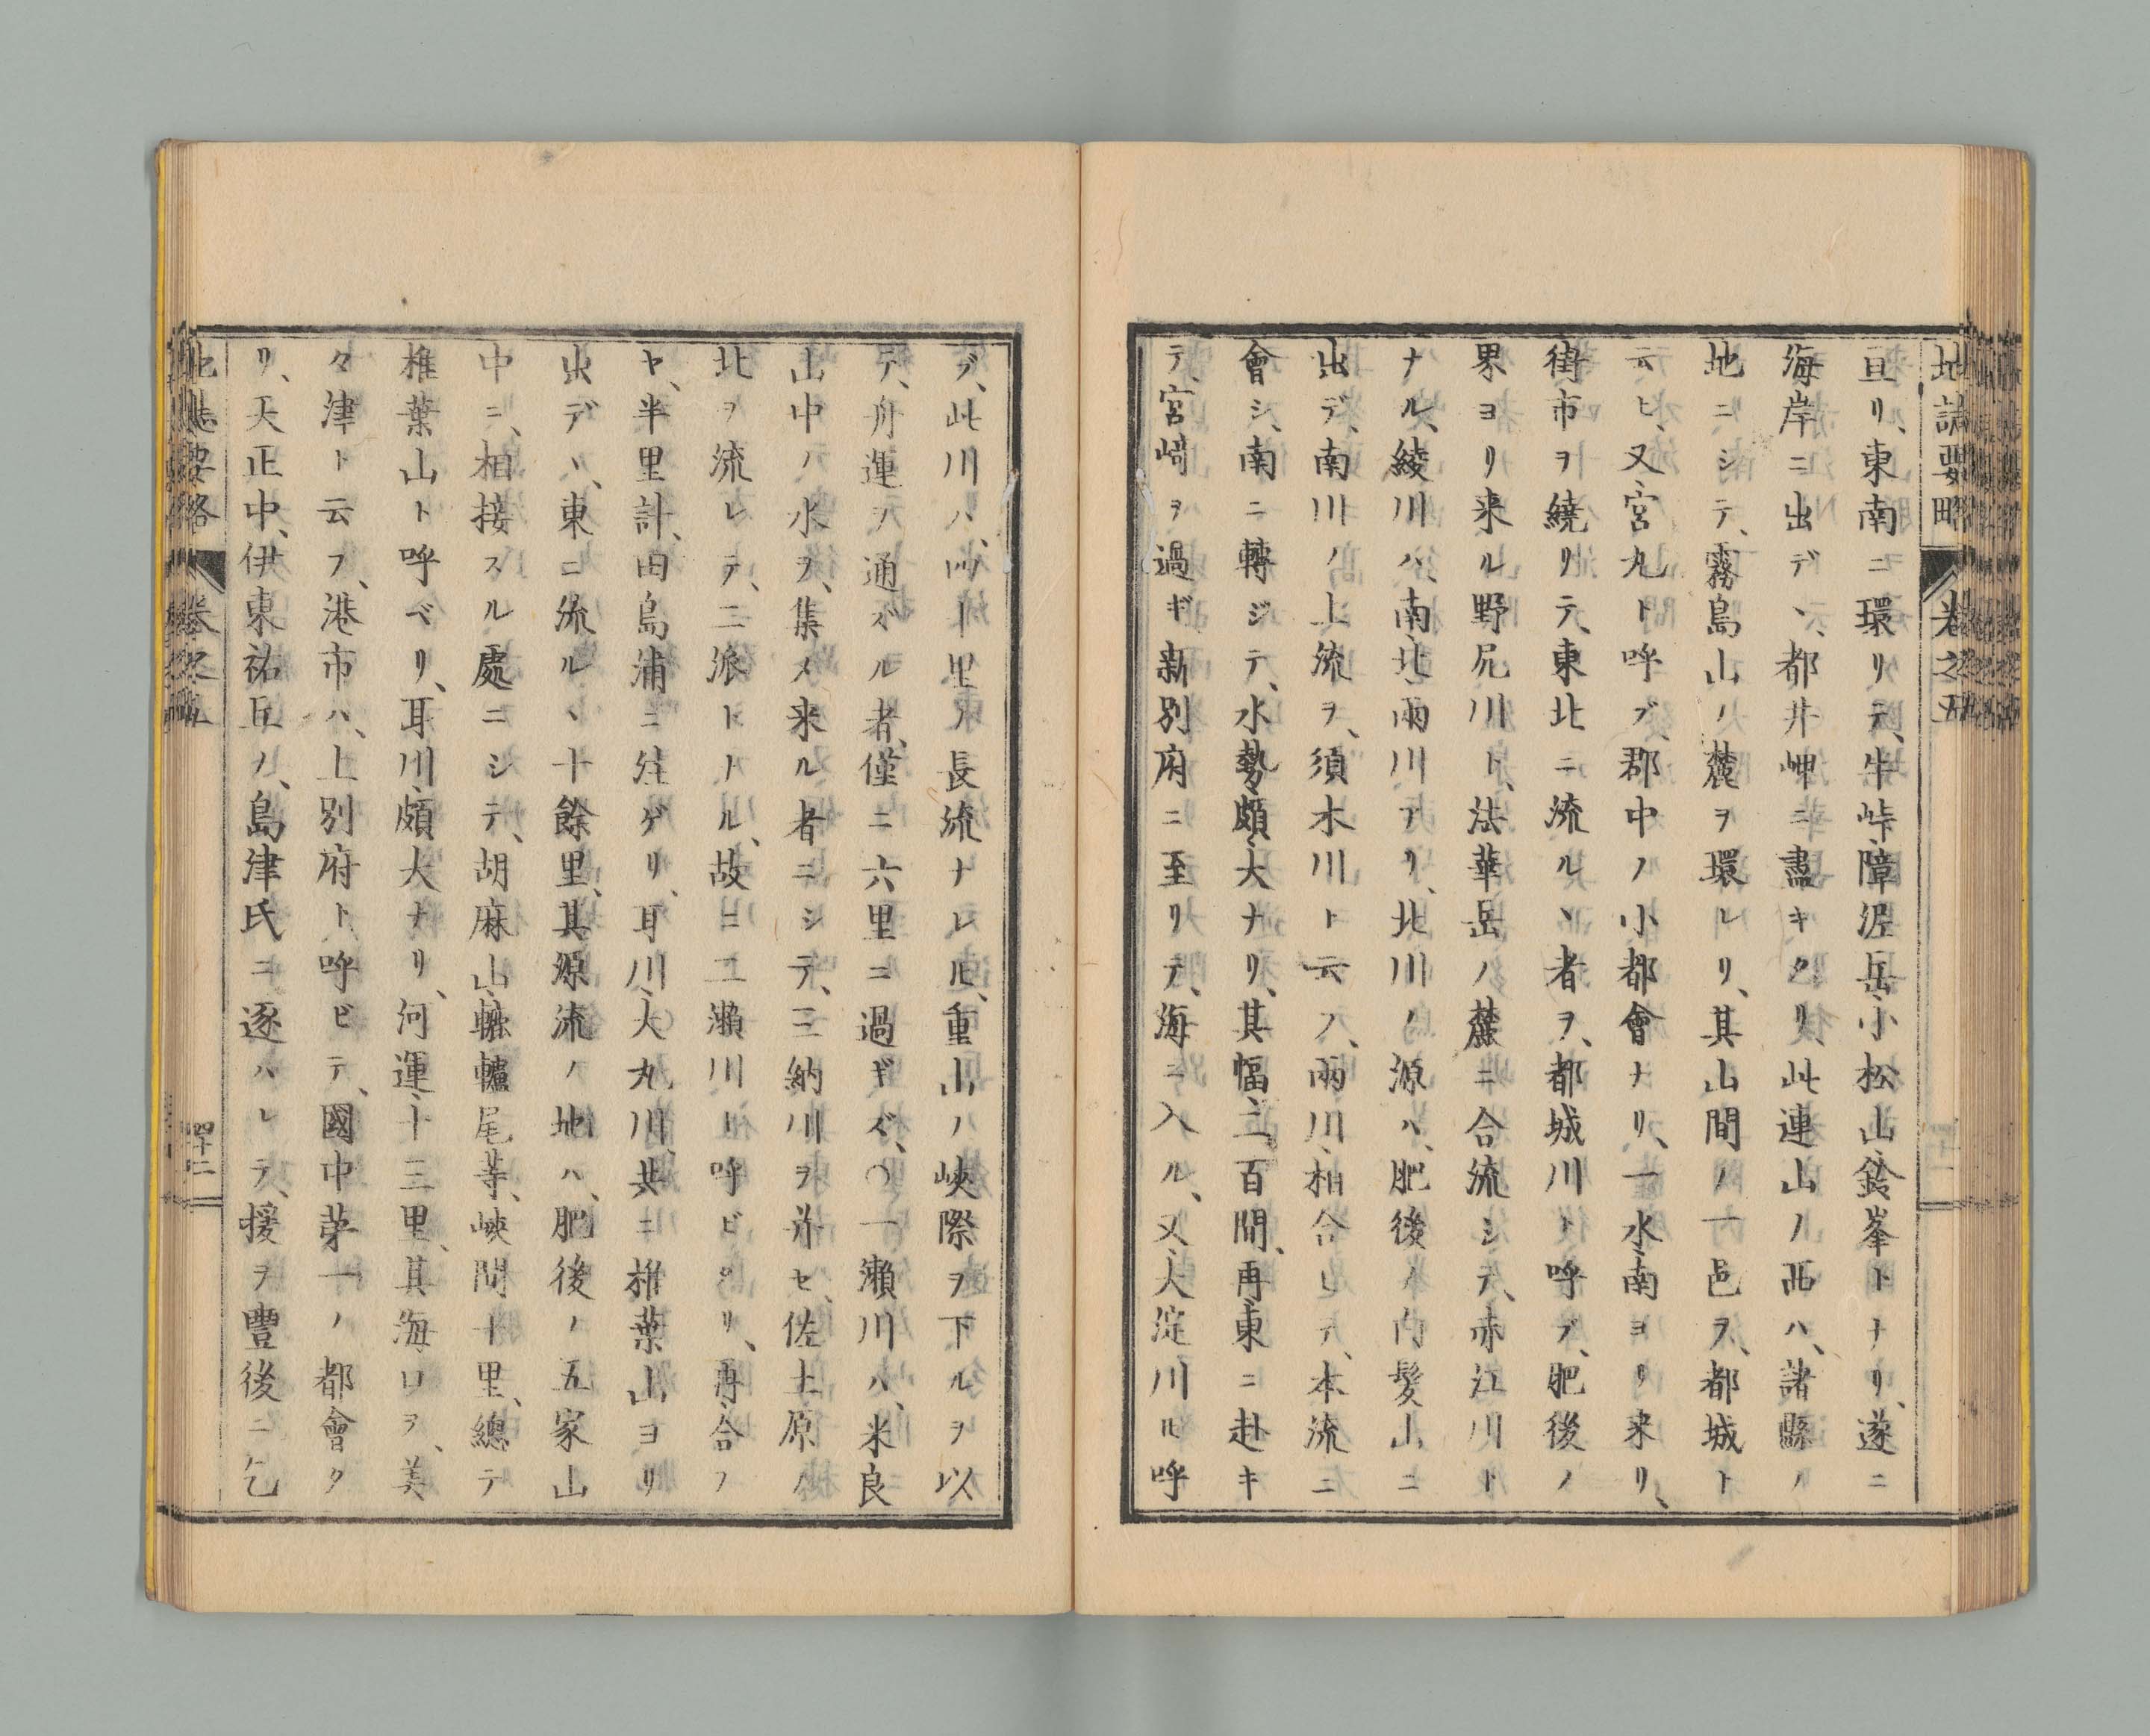 地誌要略 卷之五
亘リ、東南ニ環リテ、牛峠、障泥岳、小松山、鈴峯トナリ、遂ニ
海岸ニ出デヽ、都井岬ニ盡キタリ、此連山ノ西ハ、諸縣ノ
地ニシテ、霧島山ノ麓ヲ環レリ、其山間ノ一邑ヲ、都城ト
云ヒ、又宮丸ト呼ブ、郡中ノ小都會ナリ、一水、南ヨリ来リ、
街市ヲ繞リテ、東北ニ流ルヽ者ヲ、都城川ト呼ブ、肥後ノ
界ヨリ来ル野尻川ト、法華岳ノ麓ニ合流シテ、赤江川ト
ナル、綾川ハ、南北兩川アリ、北川ノ源ハ、肥後ノ内髪山ニ
出デ、南川ノ上流ヲ、須木川ト云フ、兩川、相合シテ、本流ニ
會シ、南ニ轉ジテ、水勢頗大ナリ、其幅二百間、再東ニ赴キ
テ、宮﨑ヲ過ギ、新別府ニ至リテ、海ニ入ル、又大淀川ト呼
ブ、此川ハ、四十里ノ長流ナレドモ、重山ノ峡際ヲ下ルヲ以
テ、舟運ヲ通ズル者、僅ニ六里ニ過ギズ、〇一瀬川ハ、米良
山中ノ水ヲ、集メ来ル者ニシテ、三納川ヲ并セ、佐土原ノ
北ヲ流レテ、二派トナル、故ニ二瀬川ト呼ビタリ、再合フ
ヤ、半里計、田島浦ニ注ゲリ、耳川、大丸川、共ニ椎葉山ヨリ
出デヽ、東ニ流ルヽ、十餘里、其源流ノ地ハ、肥後ノ五家山
中ニ、相接スル處ニシテ、胡麻山、轆轤尾等、峡間十里、總テ
椎葉山ト呼ベリ、耳川、頗大ナリ、河運、十三里、其海口ヲ、美
々津ト云フ、港市ハ、上別府ト呼ビテ、國中第一ノ都會タ
リ、天正中、伊東祐兵ノ、島津氏ニ逐ハレテ、援ヲ豐後ニ乞
地誌要略 卷之五 四十二